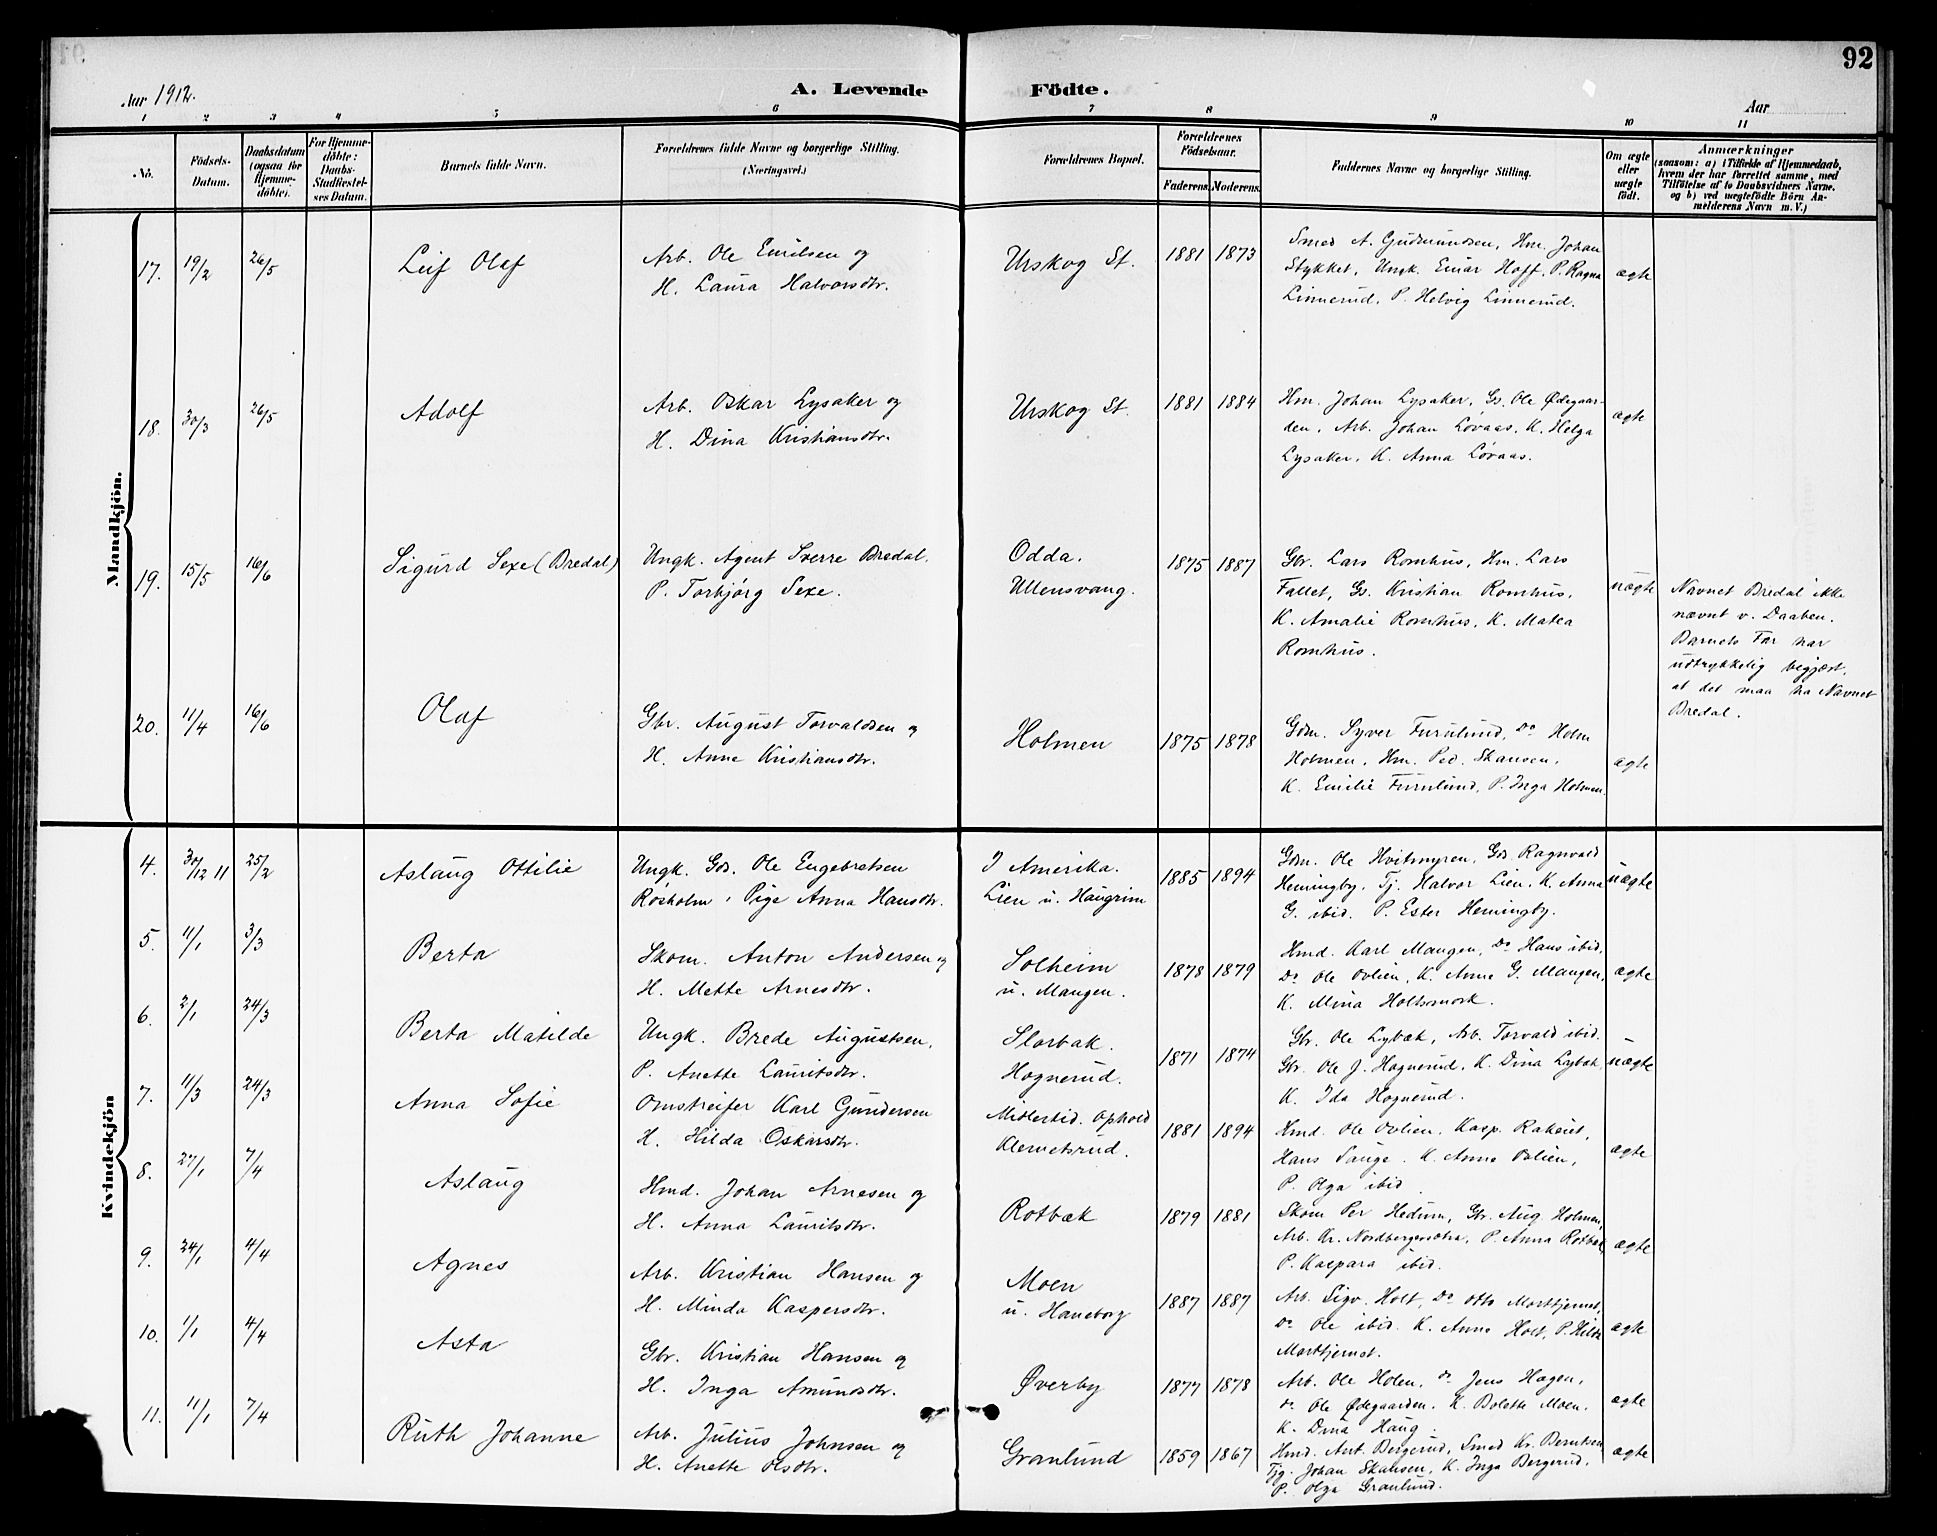 92
Aar 1912.
A. Levende Födte.
Aar
1 2 3 4 5 6 7 8 9 10 11
No.
Födsels-Datum.
Daabsdatum (ogsaa for Hjemme-döbte).
For Hjemme-döbte: Daabs-Stadfæstel-ses Datum.
Barnets fulde Navn.
Forældrenes fulde Navne og borgerlige Stilling. (Næringsvei.)
Forældrenes Bopæl.
Forældrenes Födselsaar.
Faderens. Moderens.
Faddernes Navne og borgerlige Stilling.
Om ægte eller uægte födt.
Anmærkninger
(saasom: a) i Tilfælde af Hjemmedaab,
hvem der har forrettet samme, med
Tilföielse af to Daabsvidners Navne.
og b) ved uægtefödte Börn An-
melderens Navn m. V.)
Mandkjön.
17. 19/2 26/5 Leif Olaf
Arb. Ole Emilsen og
H. Laura Halvorsdtr.
Urskog St. 1881 1873
Smed A. Gudmundsen, Hm. Johan
Stykket, Ungk. Einar Hoff, P. Ragna
Linnerud, P. Helvig Linnerud.
ægte
18. 30/3 26/5 Adolf
Arb. Oskar Lysaker og
H. Dina Kristiansdtr.
Urskog St. 1881 1884
Hm. Johan Lysaker, Gs. Ole Ødegaar-
den, Arb. Johan Løvaas, K. Helga
Lysaker, K. Anna Løvaas.
ægte
19. 15/5 16/6 Sigurd Sexe (Bredal)
Ungk. Agent Sverre Bredal.
P. Torbjørg Sexe.
Odda.
Ullensvang.
1875 1887
Gbr. Lars Romhus, Hm. Lars
Fallet, Gs. Kristian Romhus,
K. Amalie Romhus, K. Matea
Romhus.
uægte
Navnet Bredal ikke
nævnt v. Daaben.
Barnets Far har
udtrykkelig begjært,
at det maa ha Navnet
Bredal.
20. 11/4 16/6 Olaf
Gbr. August Torvaldsen og
H. Anne Kristiansdtr.
Holmen 1875 1878
Gdm. Syver Furulund, Do Helm
Holmen, Hm. Ped. Skansen,
K. Emilie Furulund, P. Inga Holmen.
ægte
Kvindekjön
4. 30/12 11 25/2 Aslaug Ottilie
Ungk. Gds. Ole Engebretsen
Røsholm, Pige Anna Hansdtr.
I Amerika.
Lien u. Haugrim
1885 1894
Gdm. Ole Hvitmyren, Gds. Ragnvald
Hemingby, Tj. Halvor Lien, K. Anna
G. ibid. P. Ester Hemingby.
uægte
5. 11/1 3/3 Berta
Skom. Anton Andersen og
H. Mette Arnesdtr.
Solheim
u. Mangen.
1878 1879
Hmd. Karl Mangen, Do Hans ibid,
Do Ole Ovlien, K. Anne G. Mangen,
K. Mina Holtsmork.
ægte
6. 2/1 24/3 Berta Matilde
Ungk. Brede Augustsen,
P. Anette Lauritsdtr.
Slorbak.
Hognerud.
1871 1874
Gbr. Ole Lybæk, Arb. Torvald ibid.
Gbr. Ole J. Hognerud, K. Dina Lybæk
K. Ida Hognerud.
uægte
7. 11/3 24/3 Anna Sofie
Omstreifer Karl Gundersen
H. Hilda Oskarsdtr.
Midlertid. Ophold
Klemetsrud.
1881 1894
Hmd. Ole Ovlien, Kasp. Rakeiet,
Hans Tange. K. Anne Ovlien,
P. Olga ibid.
ægte
8. 27/1 7/4 Aslaug
Hmd. Johan Arnesen og
H. Anna Lauritsdtr.
Rotbæk 1879 1881
Skom Per Hedum, Gbr. Aug. Holmen,
Arb. Kr. Nordbergersetra, P. Anna Rotbæk,
P. Kaspara ibid.
ægte
9. 24/1 4/4 Agnes
Arb. Kristian Hansen og
H. Minda Kaspersdtr.
Moen
u. Haneborg
1887 1887
Arb. Sigv. Holt, Do Otto Morttjernet,
Do Ole ibid. K. Anna Holt, P. Hilda
Morttjernet.
ægte
10. 1/1 4/4 Asta
Gbr. Kristian Hansen og
H. Inga Amundsdtr.
Øverby 1877 1878
Arb. Ole Holen, do Jens Hagen,
do Ole Ødegaarden. K. Bolette Moen,
K. Dina Haug.
ægte
11. 11/1 7/4 Ruth Johanne
Arb. Julius Johnsen og
H. Anette Olsdtr.
Granlund 1859 1867
Hmd. Ant. Bergerud, Smed Kr. Berntsen,
Tjg. Johan Skansen, K. Inga Bergerud,
P. Olga Granlund.
ægte